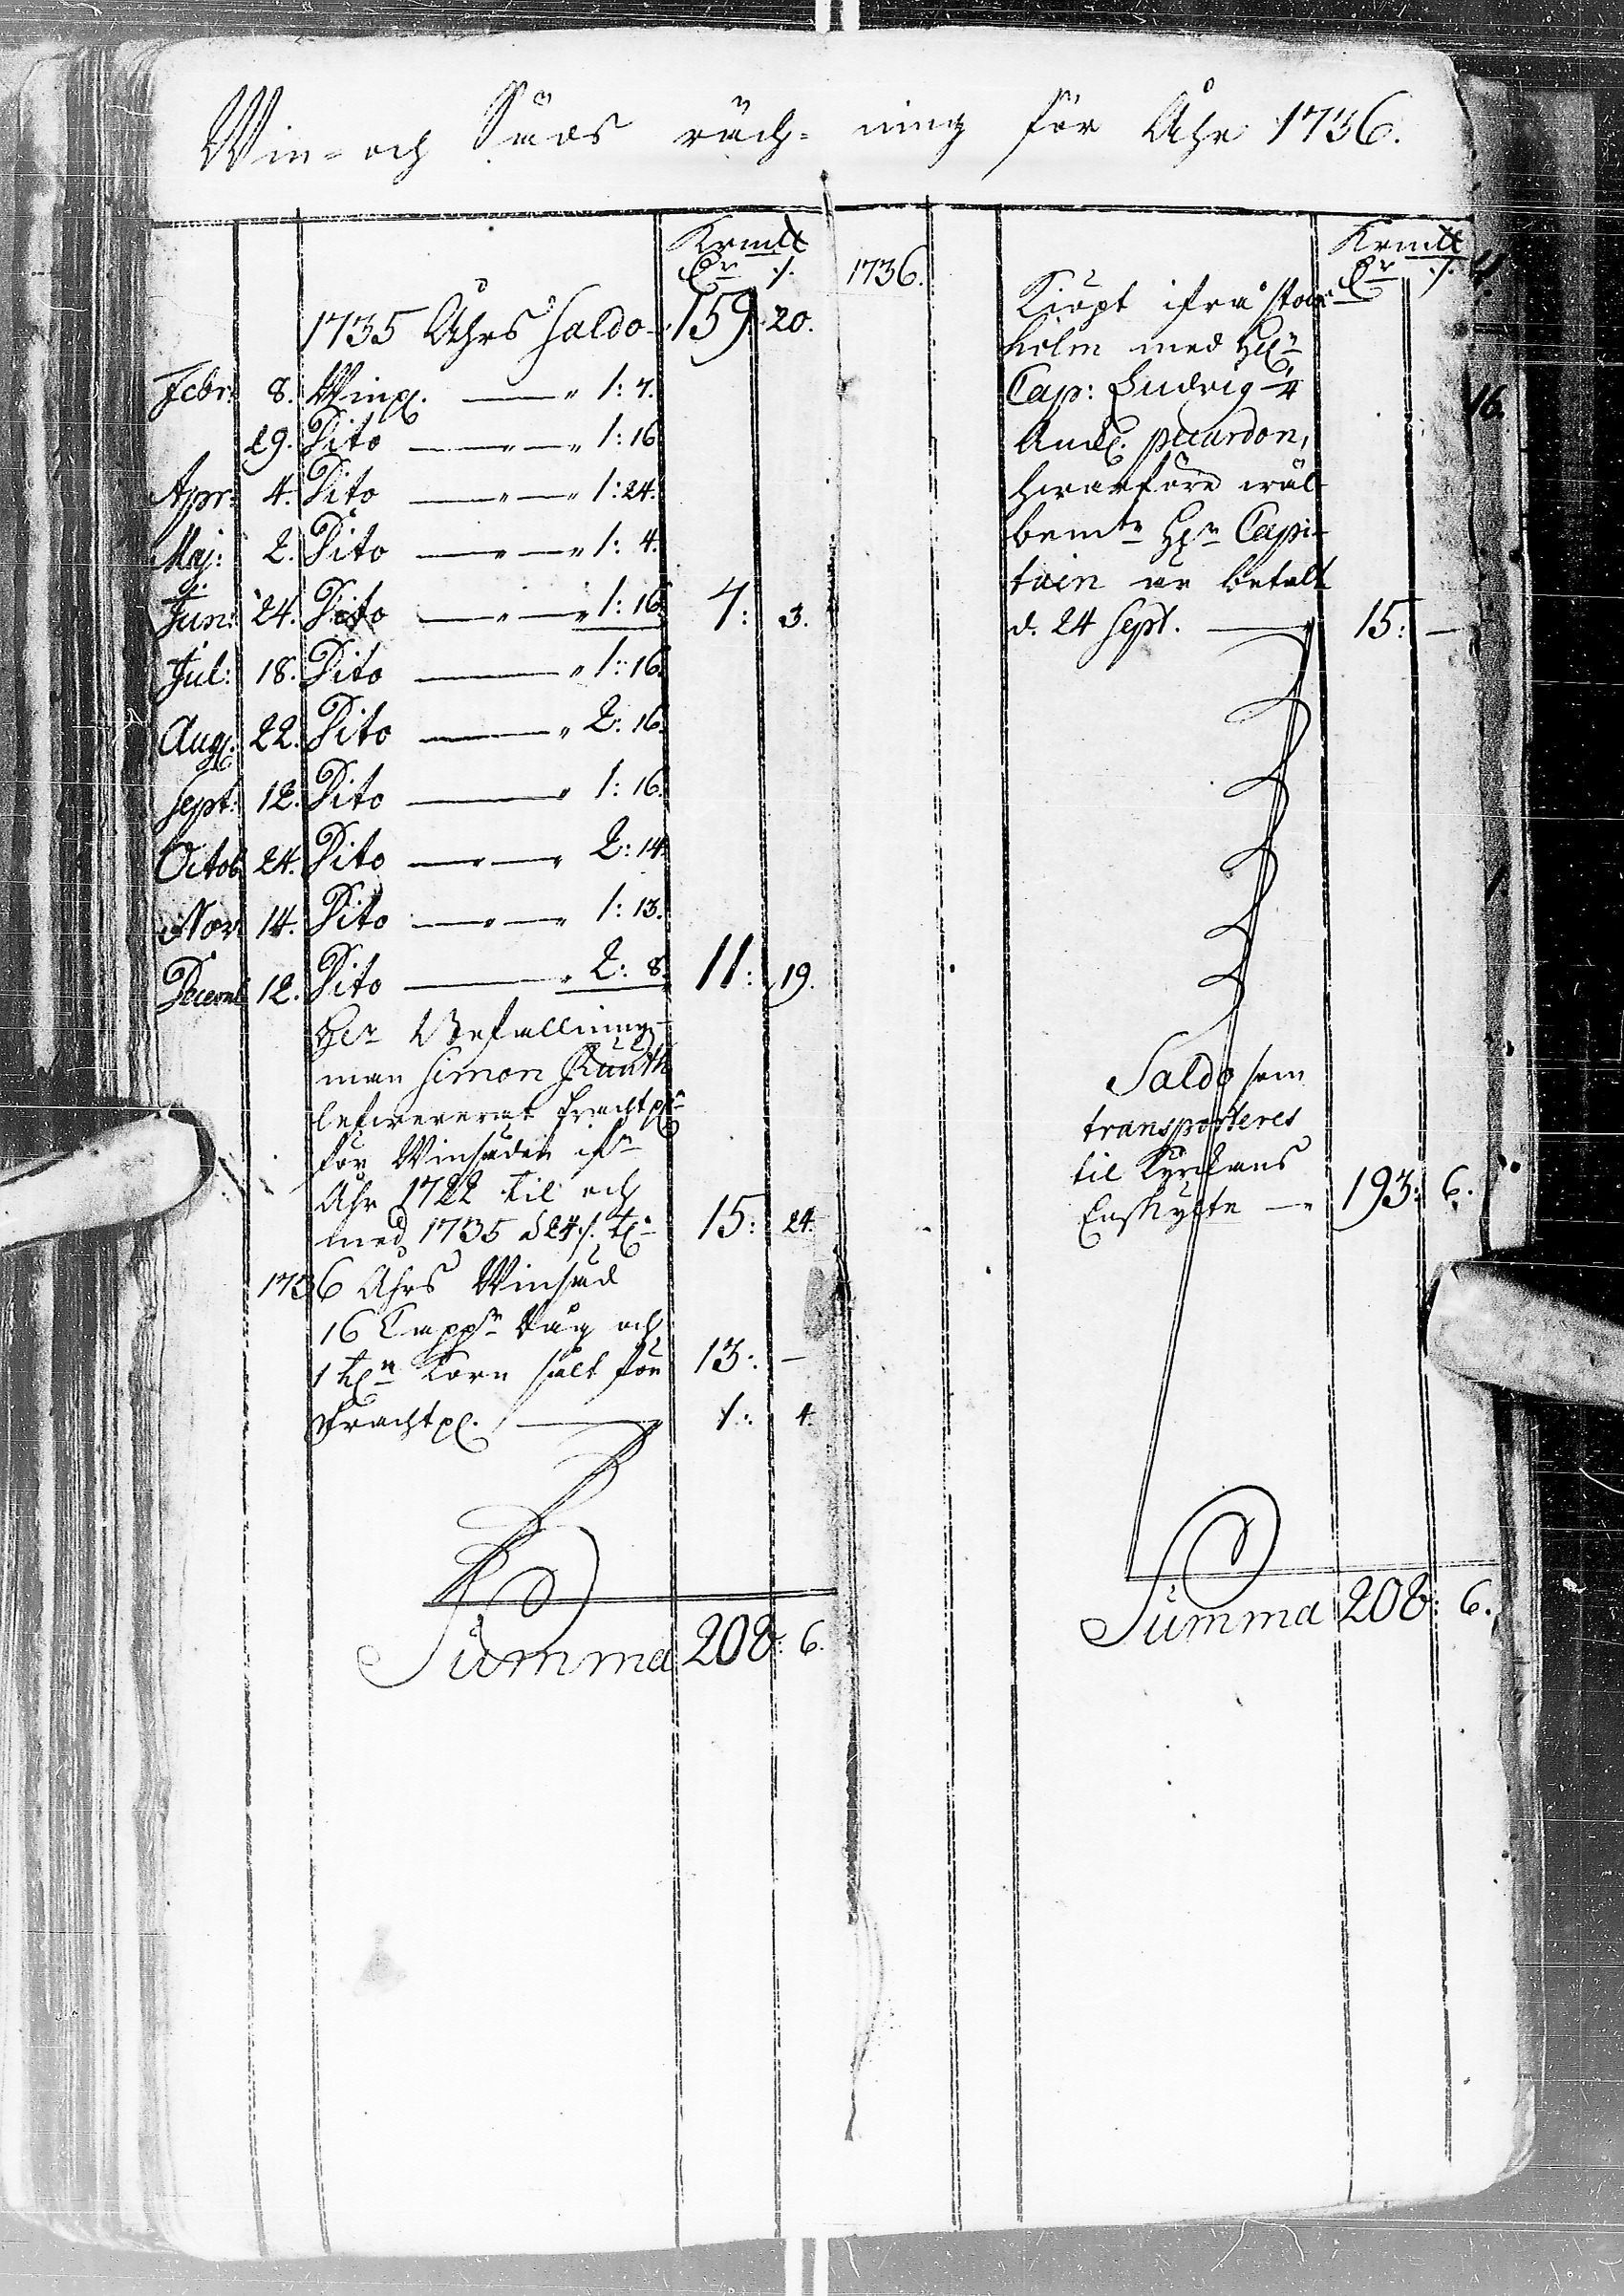 Win- och Sädes räch- ning för Åhr 1736.
Kr mt
Dr ./.
1735 Åhrs Saldo 159. 20.
Febr: 8. Winp. 1: 7.
29. Dito 1: 16.
Apr: 4. Dito 1: 24.
Maj: 2. Dito 1: 4.
Jun: 24. Dito 1: 16. 7: 3.
Jul: 18. Dito 1: 16.
Aug: 22. Dito 2: 16.
Sept: 12. Dito 1: 16.
Octob 24. Dito 2: 14.
Nov: 14. Dito 1: 13.
Decemb 12. Dito 2: 8. 11: 19.
Hr Befallning-
man Simon
lefwererat frachtp:
för Winsäden ifr
Åhr 1722 til och
med 1735 à 24 ./. 15: 24.
1736 Åhrs Winsäd
16 Capp:r Råg och
1 t:n Korn såld för 13: —
Frachtp. 1: 4.
Summa 208: 6.
1736.
Kr mt
Dr ./.
Kiöpt ifrå Stock-
holm med H:r
Cap: Ludvig 4
Anck. piccardon,
hwarföre wäl-
bem:te H:r Capi-
tain är betalt
d. 24 Sept. 15: —
Saldo som
transporteres
til Kyrckans
193: 6.
Summa 208: 6.
16.